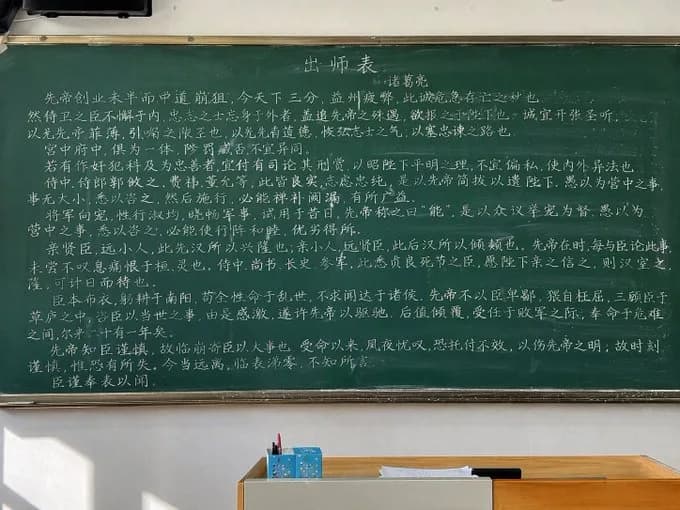 出师表
诸葛亮
先帝创业未半而中道崩殂，今天下三分，益州疲弊，此诚危急存亡之秋也
然侍卫之臣不懈于内，忠志之士忘身于外者，盖追先帝之殊遇，欲报之于陛下也。诚宜开张圣听，
以光先帝 以光先 遗德，恢弘志士之气，以塞忠谏之路也
宫中府中，俱为一体，陟罚臧否，不宜异同。
若有作奸犯科及为忠善者，宜付有司论其刑赏，以昭陛下平明之理，不宜偏私，使内外异法也
侍中，侍郎郭攸之，费祎，董允等，此皆良实，志虑忠纯，是以先帝简拔以遗陛下，愚以为营中之事，
事无大小，悉以咨之，然后施行，必能裨补阙漏，有所广益。
将军向宠，性行淑均，晓畅军事，试用于昔日，先帝称之曰"能"，是以众议举宠为督，愚以为
营中之事，悉以咨之，必能使行阵和睦，优劣得所。
亲贤臣，远小人，此先汉所以兴隆也；亲小人，远贤臣，此后汉所以倾颓也。先帝在时，每与臣论此事，
未尝不叹息痛恨于桓、灵也。侍中、尚书、长史、参军，此悉贞良死节之臣，愿陛下亲之信之，则汉室之
隆，可计日而待也。
臣本布衣，躬耕于南阳，苟全性命于乱世，不求闻达于诸侯。先帝不以臣卑鄙，猥自枉屈，三顾臣于
草庐之中，咨臣以当世之事，由是感激，遂许先帝以驱驰。后值倾覆，受任于败军之际，奉命于危难
之间，尔来 十有一年矣。
先帝知臣谨慎，故临崩寄臣以大事也。受命以来，夙夜忧叹，恐托付不效，以伤先帝之明；故时刻
谨慎，惟恐有所失。今当远离，临表涕零，不知所言
臣谨奉表以闻。